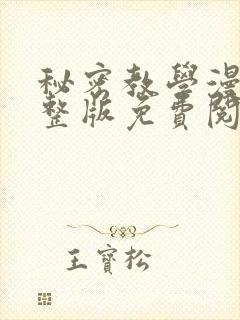 秘密教學漫
整版免費閱
王寶松